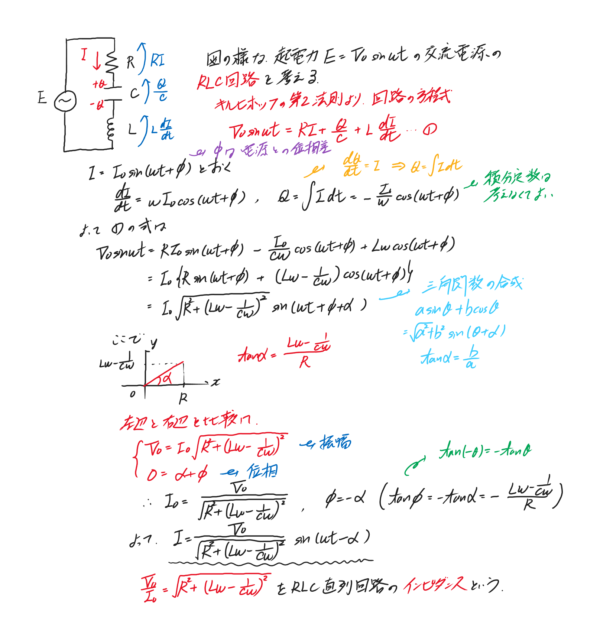 図の様な起電力 E=V₀sinωt の交流電源の
RLC回路を考える
キルヒホッフの第2法則より 回路の方程式
V₀sinωt = RI + Q/C + L dI/dt … ①
I
R
RI
+Q
-Q
C
Q/C
E
L
L dI/dt
φは電源との位相差
I = I₀sin(ωt+φ) とおく
dQ/dt = I ⇒ Q = ∫Idt
dI/dt = ωI₀cos(ωt+φ) , Q = ∫Idt = - I₀/ω cos(ωt+φ)
積分定数は
考えなくてよい
よって ①の式は
V₀sinωt = RI₀sin(ωt+φ) - I₀/Cω cos(ωt+φ) + Lωcos(ωt+φ)
= I₀{Rsin(ωt+φ) + (Lω - 1/Cω)cos(ωt+φ)}
= I₀√R²+(Lω - 1/Cω)² sin(ωt+φ+α)
三角関数の合成
asinθ+bcosθ
=√a²+b² sin(θ+α)
tanα = b/a
ここで
y
Lω - 1/Cω
α
0
R
x
tanα = Lω - 1/Cω / R
左辺と右辺を比較して
V₀ = I₀√R²+(Lω - 1/Cω)² ← 振幅
0 = α+φ ← 位相
tan(-θ) = -tanθ
∴ I₀ = V₀/√R²+(Lω - 1/Cω)² , φ=-α (tanφ = -tanα = - Lω - 1/Cω / R)
よって I = V₀/√R²+(Lω - 1/Cω)² sin(ωt-α)
V₀/I₀ = √R²+(Lω - 1/Cω)² をRLC直列回路のインピダンスという.